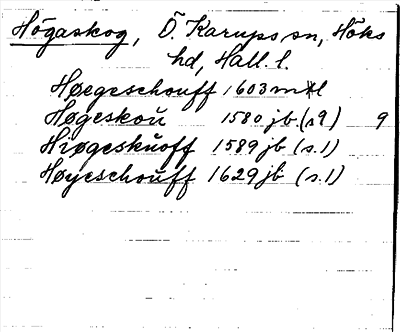 Högaskog, Ö. Karups sn, Höks
hd, Hall. l.
Høegeschouff 1603 m*l
Høgeskoŭ 1580 jb (s9) 9
Hiøgeskŭoff 1589 jb (s.1)
Høyeschoŭff 1629 jb (s.1)